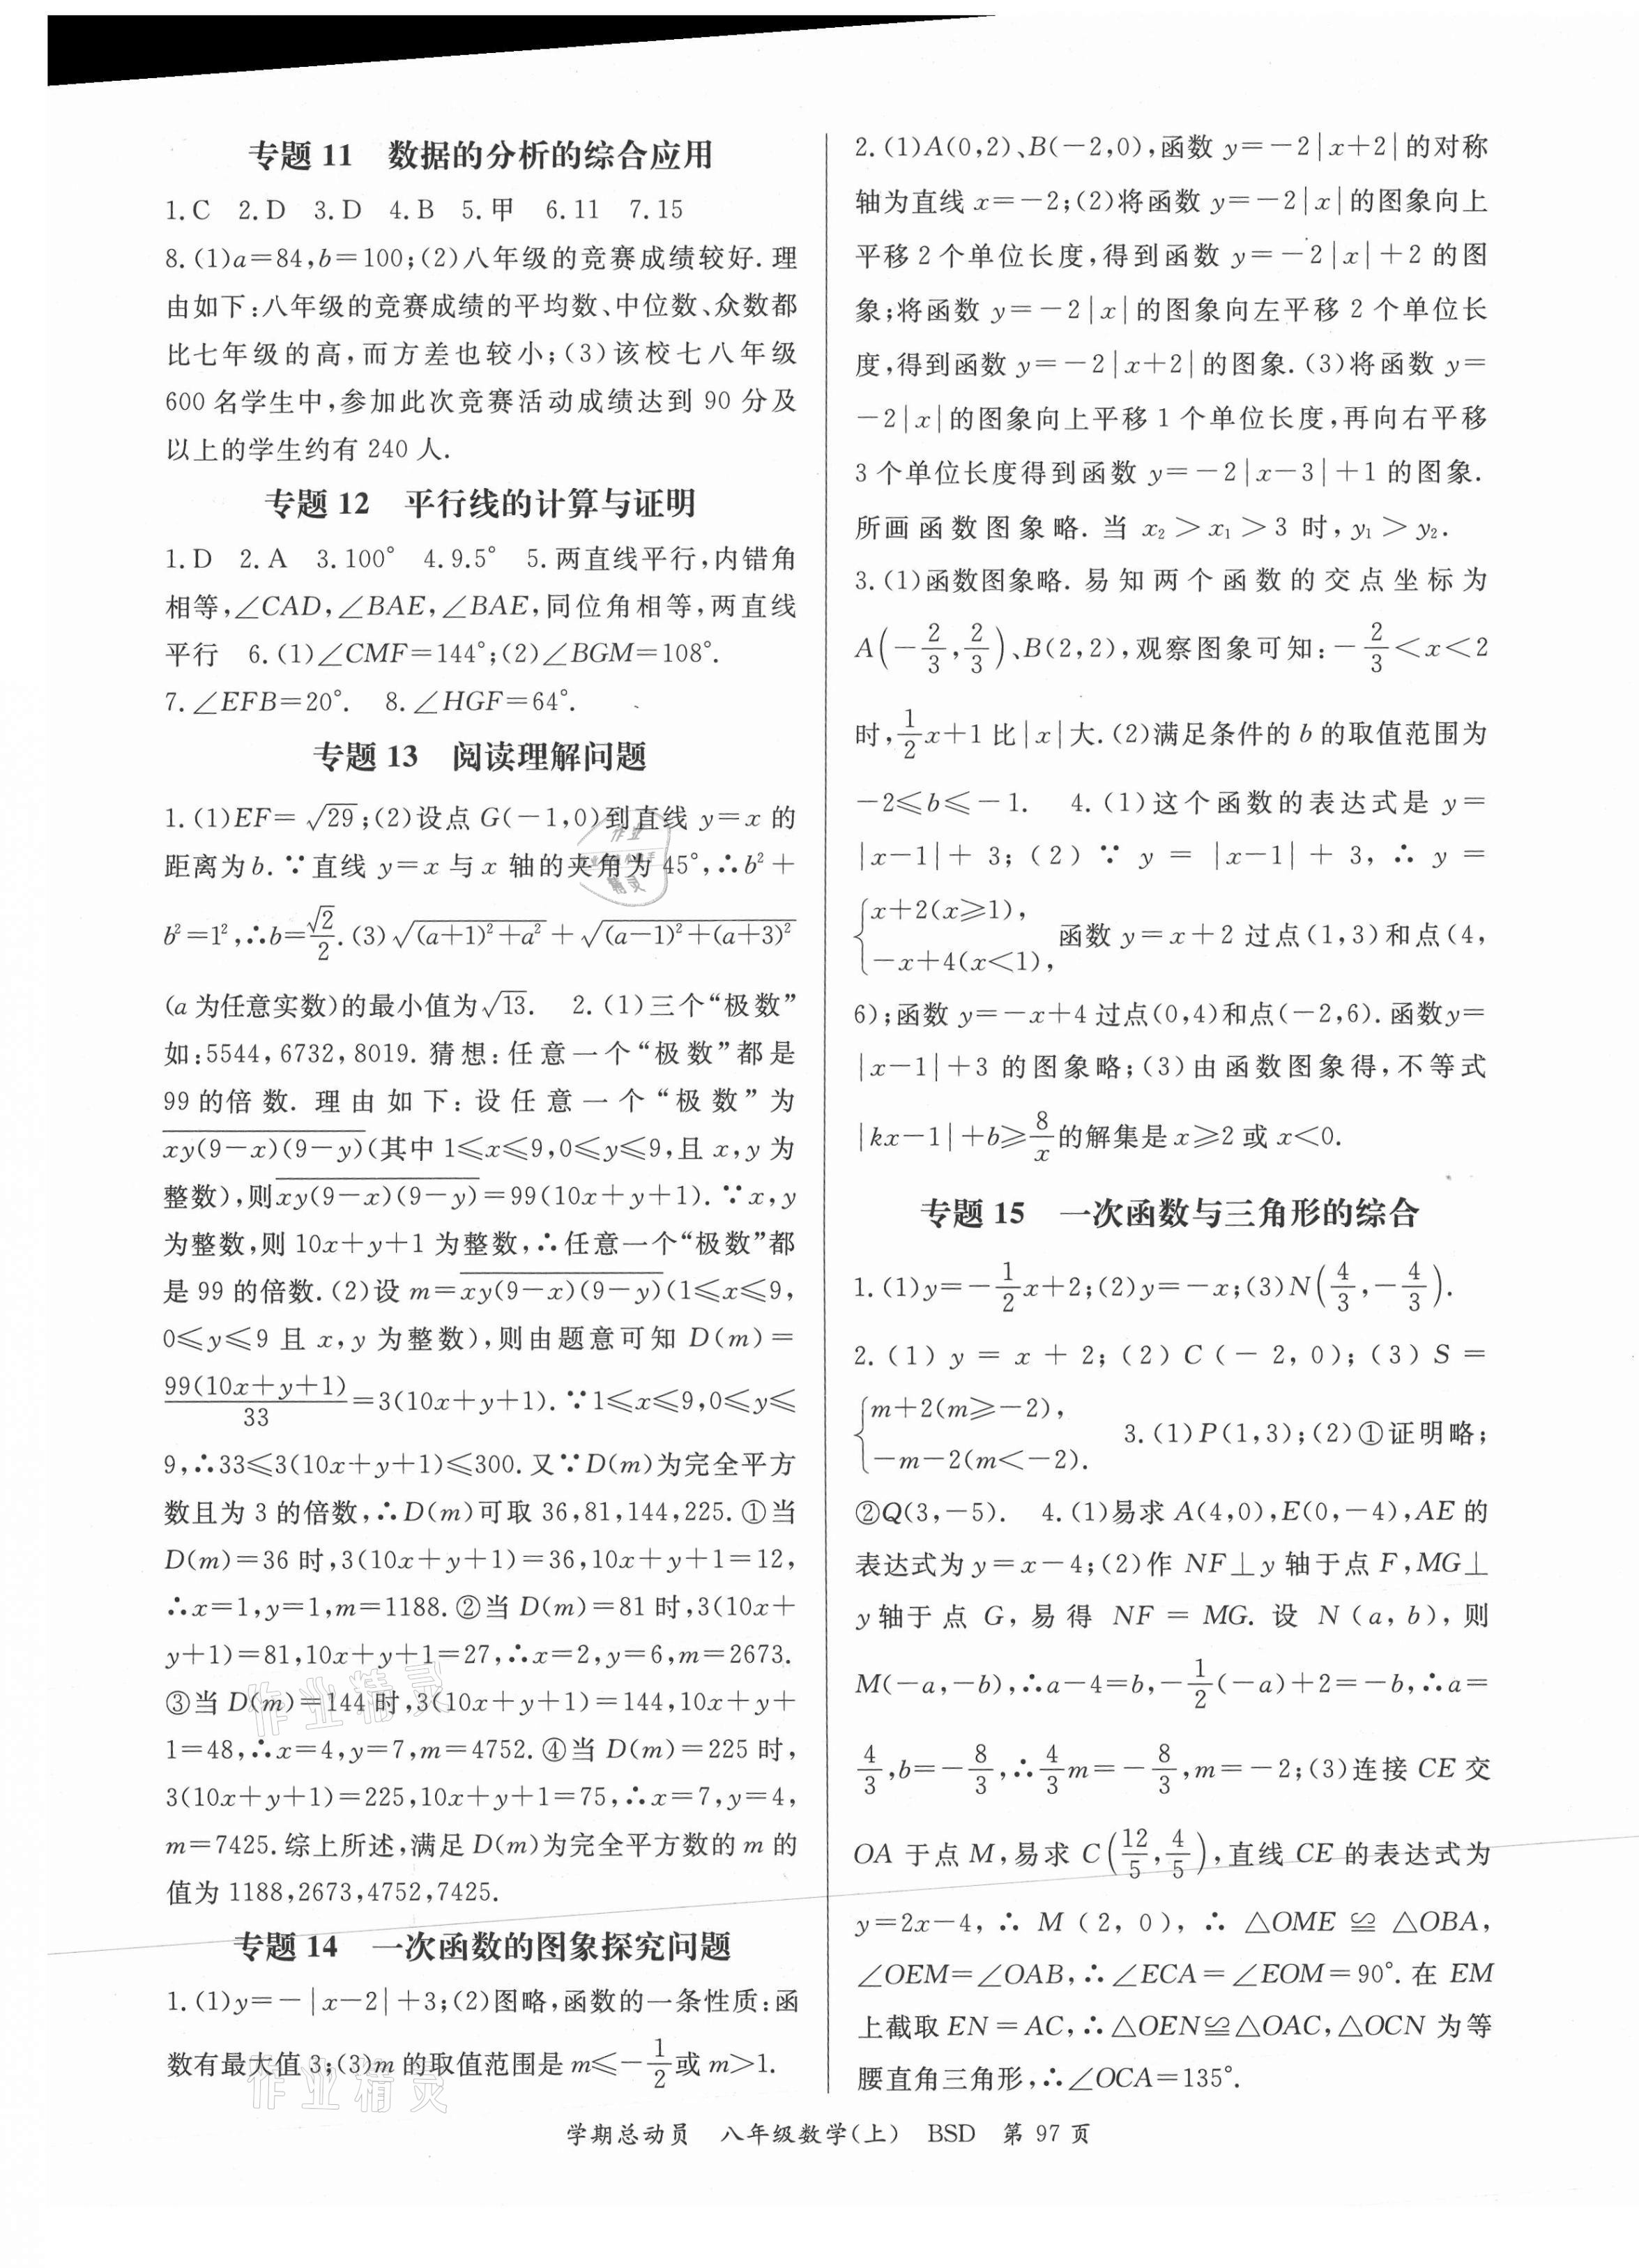 专题 11　数据的分析的综合应用
1.C　2.D　3.D　4.B　5.甲　6.11　7.15
8.(1)a=84,b=100;(2)八年级的竞赛成绩较好.理
由如下:八年级的竞赛成绩的平均数、中位数、众数都
比七年级的高,而方差也较小;(3)该校七八年级
600名学生中,参加此次竞赛活动成绩达到 90 分及
以上的学生约有 240 人.
专题 12　平行线的计算与证明
1.D　2.A　3.100°　4.9.5°　5.两直线平行,内错角
相等,∠CAD,∠BAE,∠BAE,同位角相等,两直线
平行　6.(1)∠CMF=144°;(2)∠BGM=108°.
7.∠EFB=20°.　8.∠HGF=64°.
专题 13　阅读理解问题
1.(1)EF=√29;(2)设点 G(-1,0)到直线 y=x 的
距离为b.∵直线 y=x 与 x 轴的夹角为 45°,∴b²+
b²=1²,∴b=√2/2.(3)√((a+1)²+a²)+√((a-1)²+(a+3)²)
(a为任意实数)的最小值为√13.　2.(1)三个“极数”
如:5544,6732,8019.猜想:任意一个“极数”都是
99的倍数.理由如下:设任意一个“极数”为
xy(9-x)(9-y)(其中 1≤x≤9,0≤y≤9,且 x,y 为
整数),则xy(9-x)(9-y)=99(10x+y+1).∵x,y
为整数,则 10x+y+1 为整数,∴任意一个“极数”都
是 99 的倍数.(2)设 m=xy(9-x)(9-y)(1≤x≤9,
0≤y≤9 且 x,y 为整数),则由题意可知 D(m)=
99(10x+y+1)/33=3(10x+y+1).∵1≤x≤9,0≤y≤
9,∴33≤3(10x+y+1)≤300.又∵D(m)为完全平方
数且为 3 的倍数,∴D(m)可取 36,81,144,225.①当
D(m)=36 时,3(10x+y+1)=36,10x+y+1=12,
∴x=1,y=1,m=1188.②当 D(m)=81 时,3(10x+
y+1)=81,10x+y+1=27,∴x=2,y=6,m=2673.
③当 D(m)=144时,3(10x+y+1)=144,10x+y+
1=48,∴x=4,y=7,m=4752.④当 D(m)=225 时,
3(10x+y+1)=225,10x+y+1=75,∴x=7,y=4,
m=7425.综上所述,满足 D(m)为完全平方数的 m 的
值为 1188,2673,4752,7425.
专题 14　一次函数的图象探究问题
1.(1)y=-|x-2|+3;(2)图略,函数的一条性质:函
数有最大值 3;(3)m 的取值范围是 m≤-1/2或 m>1.
2.(1)A(0,2)、B(-2,0),函数 y=-2|x+2|的对称
轴为直线 x=-2;(2)将函数 y=-2|x|的图象向上
平移 2 个单位长度,得到函数 y=-2|x|+2 的图
象;将函数 y=-2|x|的图象向左平移 2 个单位长
度,得到函数 y=-2|x+2|的图象.(3)将函数 y=
-2|x|的图象向上平移 1 个单位长度,再向右平移
3 个单位长度得到函数 y=-2|x-3|+1 的图象.
所画函数图象略.当 x₂>x₁>3 时,y₁>y₂.
3.(1)函数图象略.易知两个函数的交点坐标为
A(-2/3,2/3)、B(2,2),观察图象可知:-2/3<x<2
时,1/2x+1 比|x|大.(2)满足条件的 b 的取值范围为
-2≤b≤-1.　4.(1)这个函数的表达式是 y=
|x-1|+3;(2)∵y=|x-1|+3,∴y=
{x+2(x≥1),
-x+4(x<1), 函数 y=x+2 过点(1,3)和点(4,
6);函数 y=-x+4 过点(0,4)和点(-2,6).函数y=
|x-1|+3 的图象略;(3)由函数图象得,不等式
|kx-1|+b≥8/x的解集是 x≥2 或 x<0.
专题 15　一次函数与三角形的综合
1.(1)y=-1/2x+2;(2)y=-x;(3)N(4/3,-4/3).
2.(1)y=x+2;(2)C(-2,0);(3)S=
{m+2(m≥-2),
-m-2(m<-2).　3.(1)P(1,3);(2)①证明略;
②Q(3,-5).　4.(1)易求 A(4,0),E(0,-4),AE 的
表达式为 y=x-4;(2)作 NF⊥y 轴于点 F,MG⊥
y轴于点 G,易得 NF=MG.设 N(a,b),则
M(-a,-b),∴a-4=b,-1/2(-a)+2=-b,∴a=
4/3,b=-8/3,∴4/3m=-8/3,m=-2;(3)连接 CE 交
OA 于点 M,易求 C(12/5,4/5),直线 CE 的表达式为
y=2x-4,∴M(2,0),∴△OME≌△OBA,
∠OEM=∠OAB,∴∠ECA=∠EOM=90°.在 EM
上截取 EN=AC,∴△OEN≌△OAC,△OCN 为等
腰直角三角形,∴∠OCA=135°.
学期总动员　八年级数学(上)　BSD　第 97 页
作业精灵
作业精灵